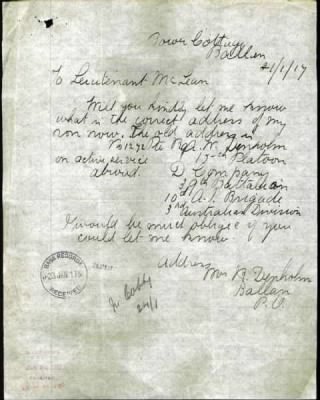 Tower Cottage
Ballan
21/1/17
To Lieutenant McLean
Will you kindly let me know
what is the correct address of my
son now. The old address is
to Pte A. W. Denholm
on active service 15th Platoon
abroad. D Company
39th Battalion
10th A. I. Brigade
3rd Australian Division
I would be much oblige if you
could let me know
Address
Mrs A. Denholm
Ballan
P. O.
BASE RECORDS
23 JAN 1917
RECEIVED
24/1